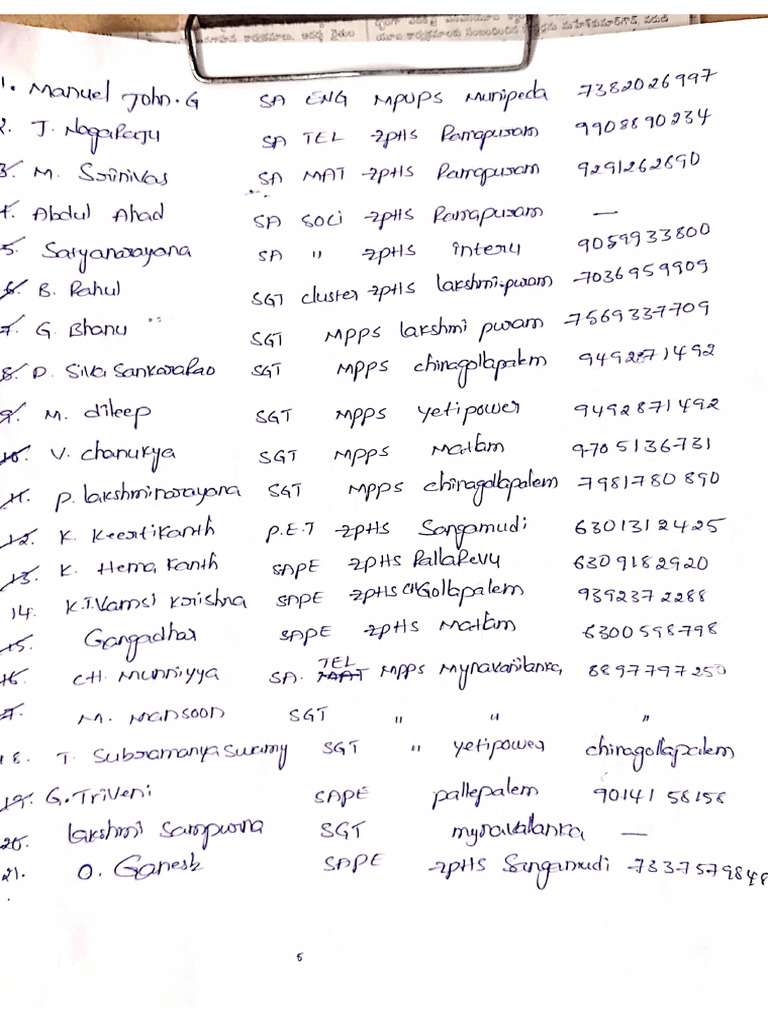 1. Manuel John.G SA ENG MPUPS Munipeda 7382026997
2. J. Nagaraju SA TEL ZPHS Parrapuram 9908890234
3. M. Srinivas SA MAT ZPHS Parrapuram 9291262890
4. Abdul Ahad SA SOCI ZPHS Parrapuram —
5. Satyanarayana SA " ZPHS interu 9059933800
6. B. Rahul SGT cluster ZPHS lakshmi-puram 7036959909
7. G. Bhanu SGT MPPS lakshmi puram 7569337709
8. D. Siva Sankararao SGT MPPS chinagollapalem 9492871492
9. M. dileep SGT MPPS yetipower 9492871492
10. V. chanukya SGT MPPS Matlam 9705136731
11. P. lakshminarayana SGT MPPS chinagollapalem 7981780890
12. K. Keertikanth P.E.T ZPHS Sangamudi 6301312425
13. K. Hema Kanth SAPE ZPHS PallaRevu 6309182920
14. K.T.Vamsi Krishna SAPE ZPHS CH Gollapalem 9392372288
15. Gangadhar SAPE ZPHS Matlam 6300598798
16. CH. Munniyya SA. TEL MPPS Mynavanilanka 8897797250
17. M. Mansoon SGT " " "
18. T. Subramanya Swamy SGT " yetipower chinagollapalem
19. G. Triveni SAPE pallepalem 9014158158
20. lakshmi Sampurna SGT mynavallanka —
21. O. Ganesh SAPE ZPHS Sangamudi 7337579848